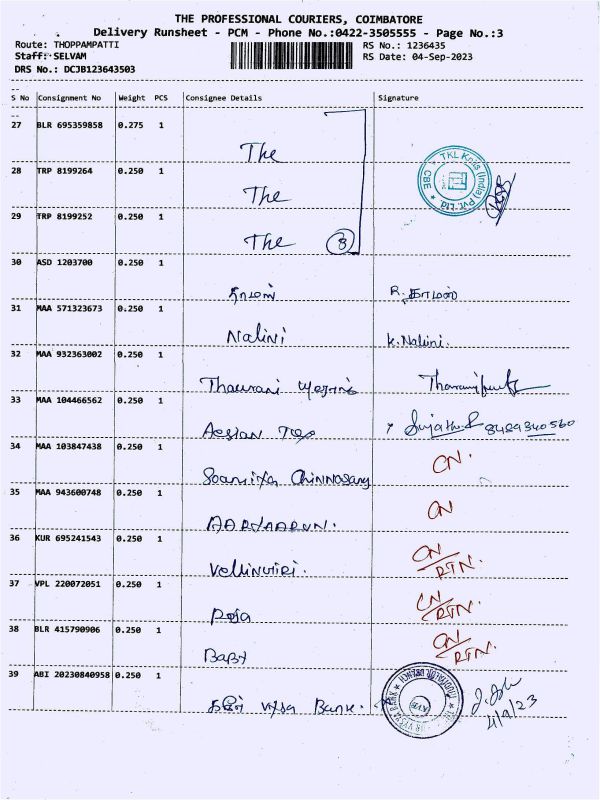 THE PROFESSIONAL COURIERS, COIMBATORE
Delivery Runsheet - PCM - Phone No.:0422-3505555 - Page No.:3
Route: THOPPAMPATTI RS No.: 1236435
Staff: SELVAM RS Date: 04-Sep-2023
DRS No.: DCJB123643503
S No Consignment No Weight PCS Consignee Details Signature
27 BLR 695359858 0.275 1
The
28 TRP 8199264 0.250 1
The
TKL Knits (India) Pvt. Ltd. CBE
29 TRP 8199252 0.250 1
The 3
30 ASD 1203700 0.250 1
31 MAA 571323673 0.250 1
Nalini K. Nalini.
32 MAA 932363002 0.250 1
33 MAA 104466562 0.250 1
Sujatha 8489340560
34 MAA 103847438 0.250 1
CN.
35 MAA 943600748 0.250 1
CN
36 KUR 695241543 0.250 1
CN/RTN.
37 VPL 220072051 0.250 1
Roja CN/RTN.
38 BLR 415790906 0.250 1
Baby CN/RTN.
39 ABI 20230840958 0.250 1
Vysya Bank.
4/9/23